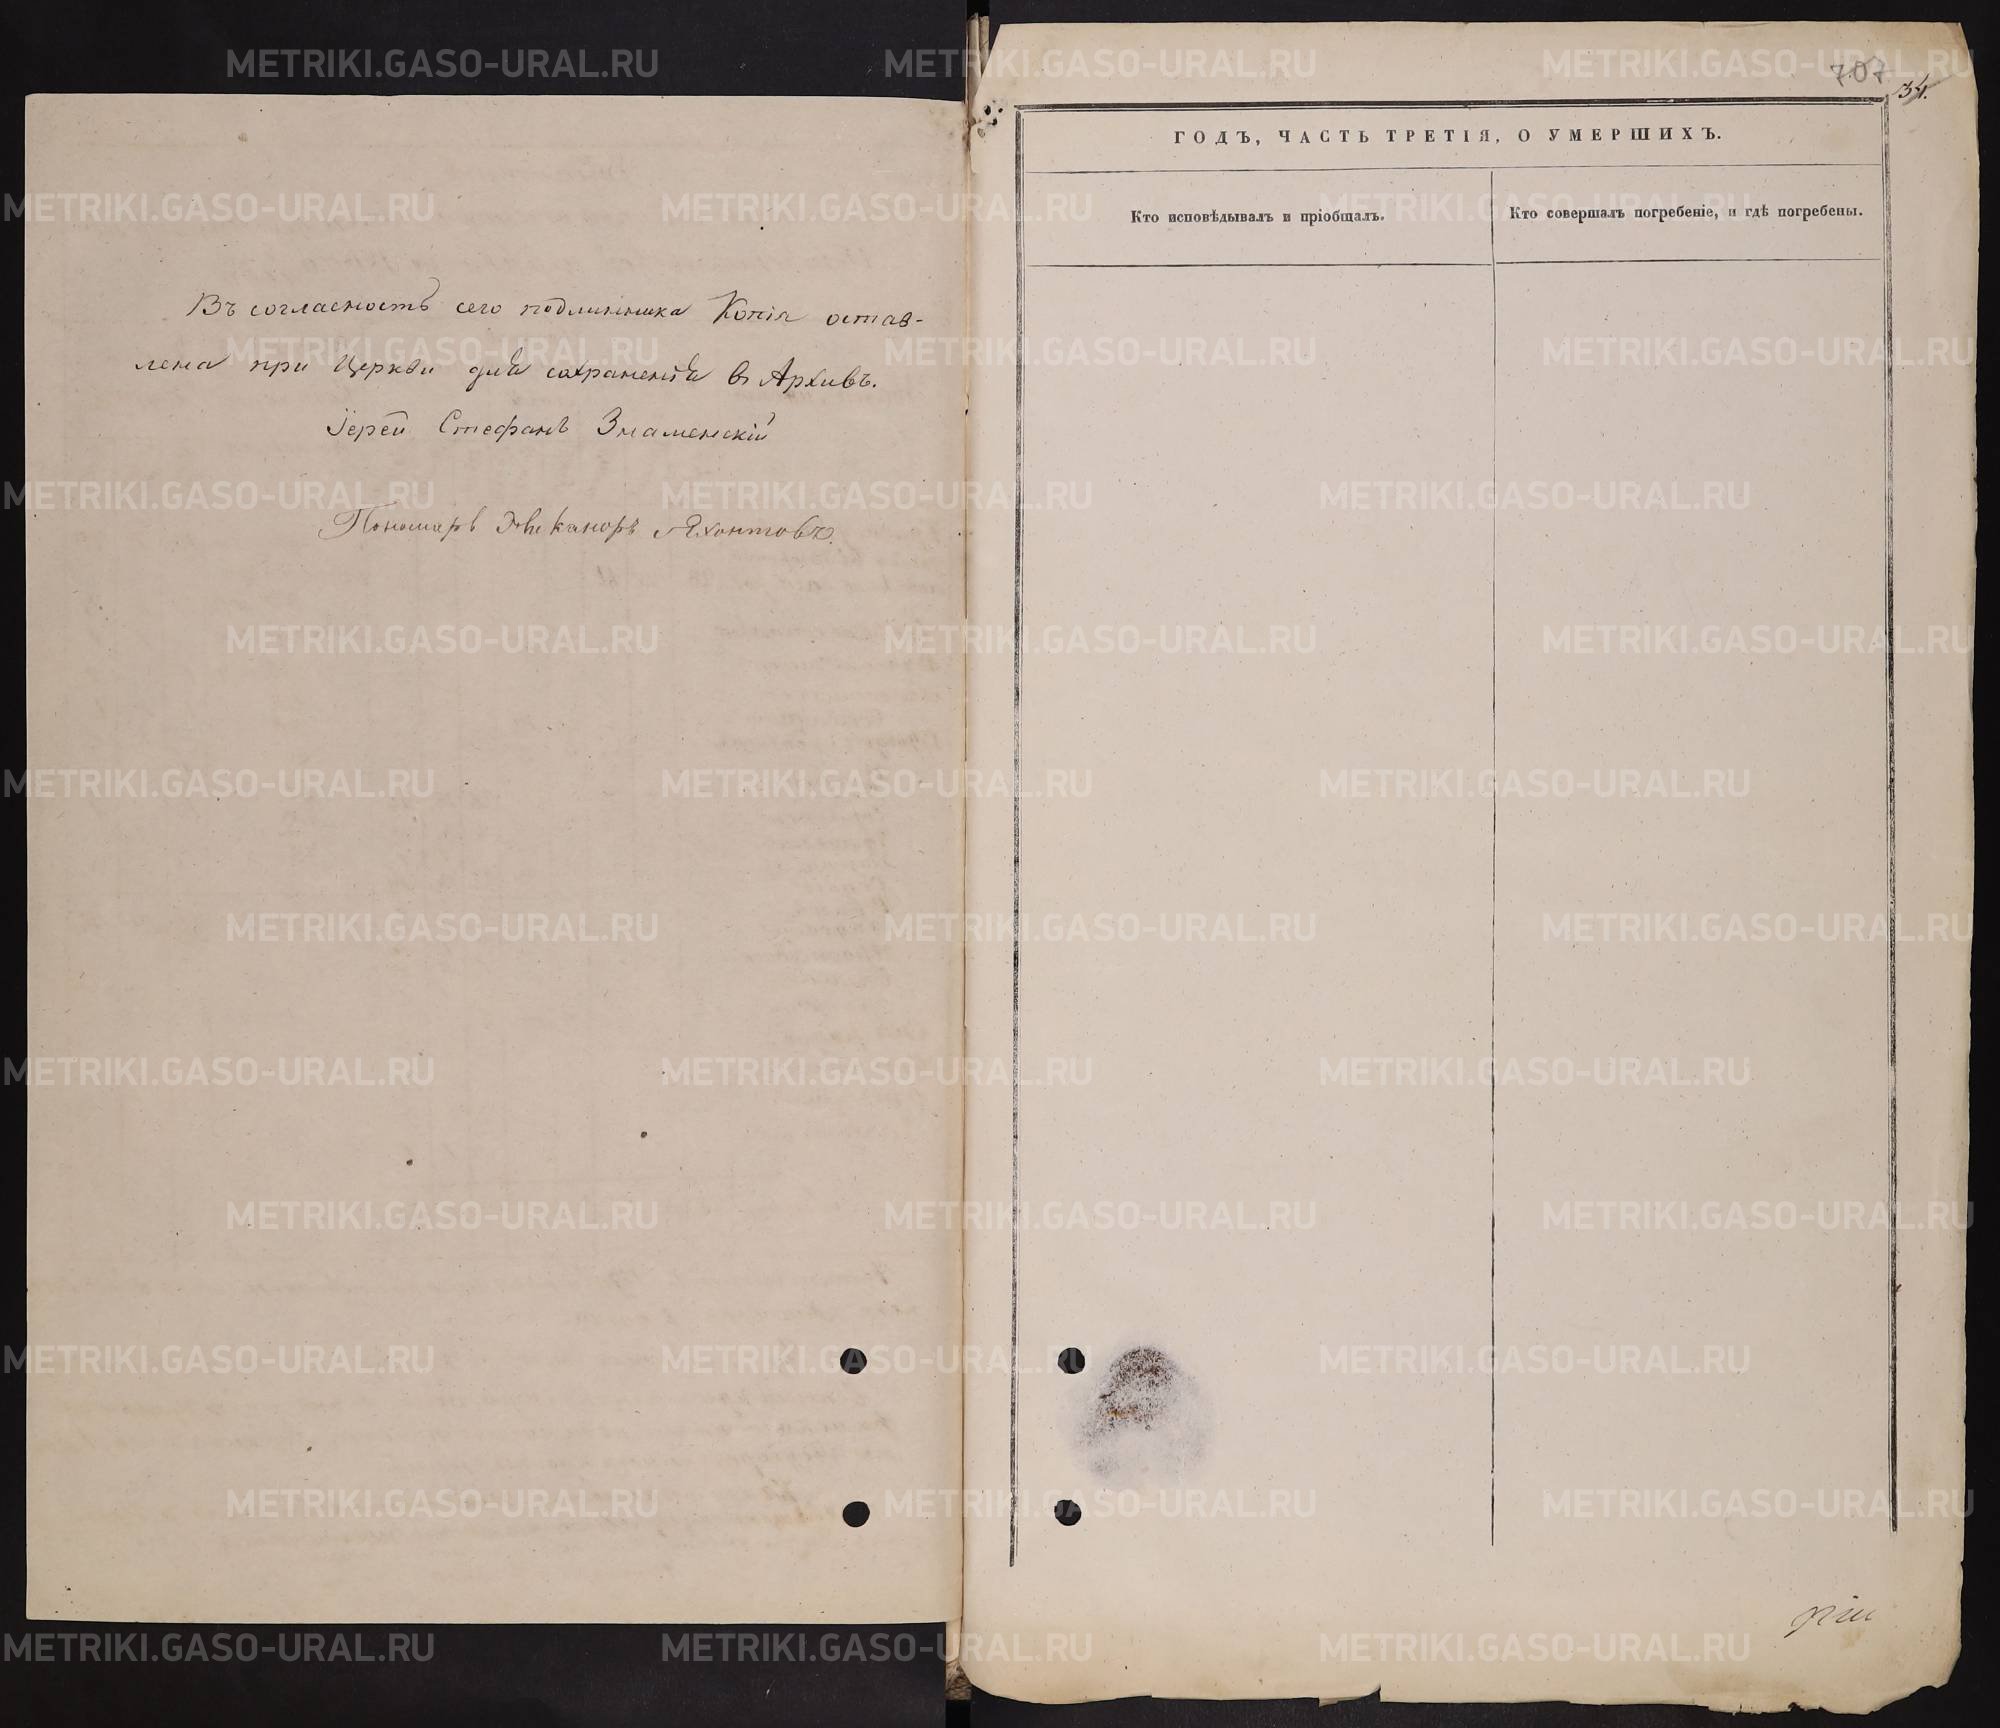 Въ согласность сего подлинника Копія остав-
лена при Церкви для сохраненія въ Архивѣ.
Іерей Стефанъ Знаменскій
Пономарь Никаноръ Яхонтовъ.
707
34.
ГОДЪ, ЧАСТЬ ТРЕТІЯ, О УМЕРШИХЪ.
Кто исповѣдывалъ и пріобщалъ.
Кто совершалъ погребеніе, и гдѣ погребены.
METRIKI.GASO-URAL.RU